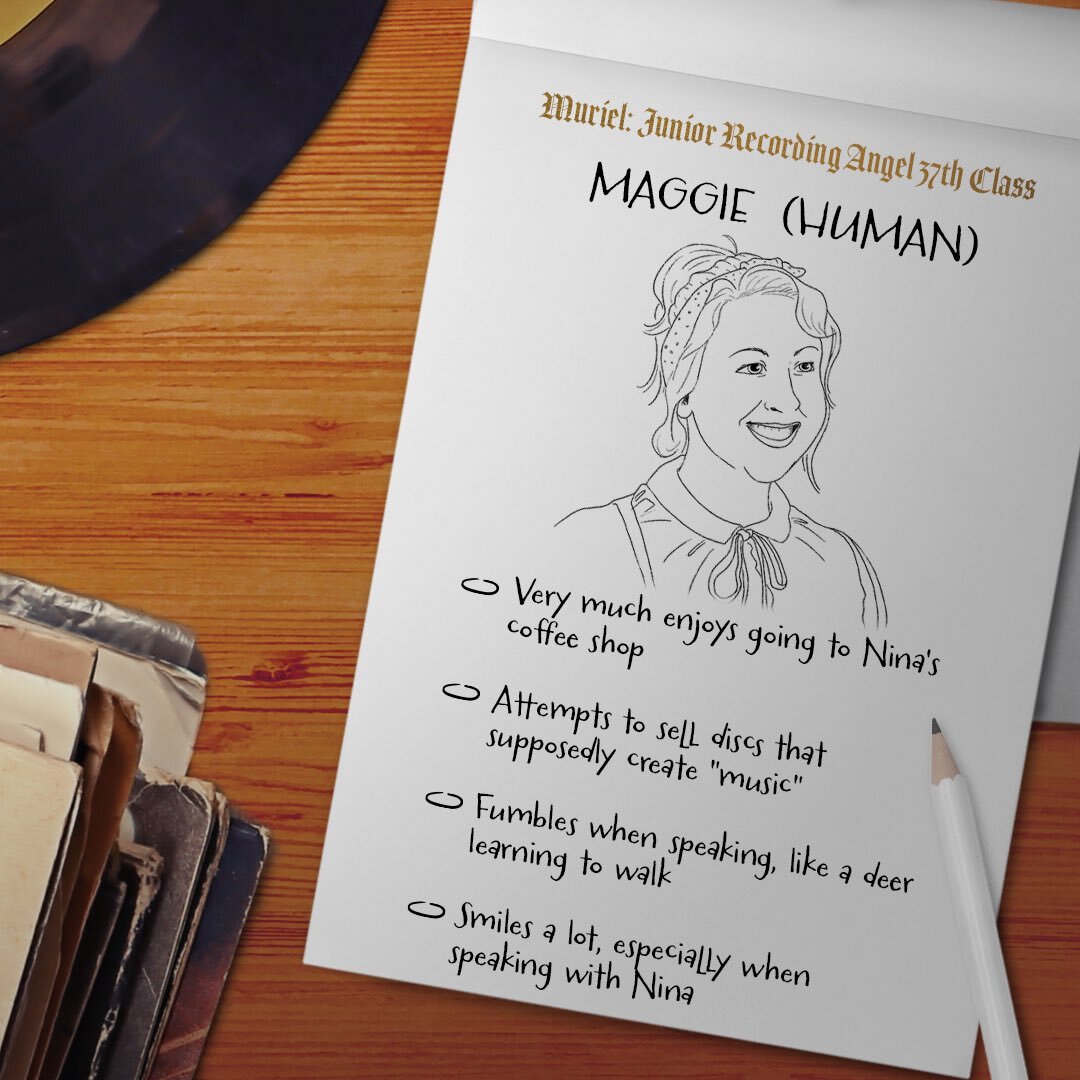 Muriel: Junior Recording Angel 37th Class
MAGGIE (HUMAN)
Very much enjoys going to Nina's
coffee shop
Attempts to sell discs that
supposedly create "music"
Fumbles when speaking, like a deer
learning to walk
Smiles a lot, especially when
speaking with Nina